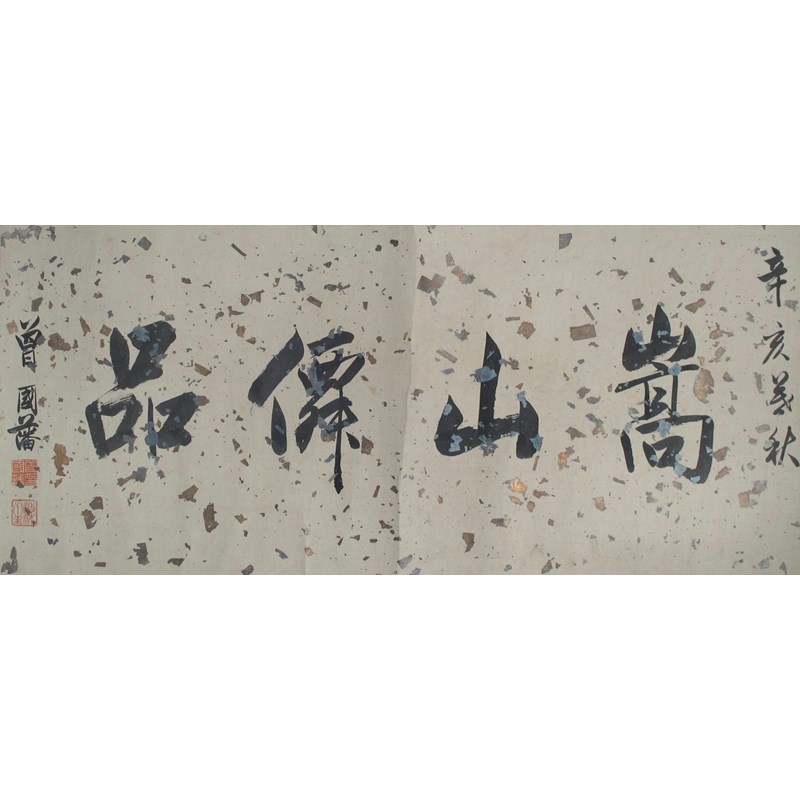 辛亥暮秋
嵩山品
曾國藩